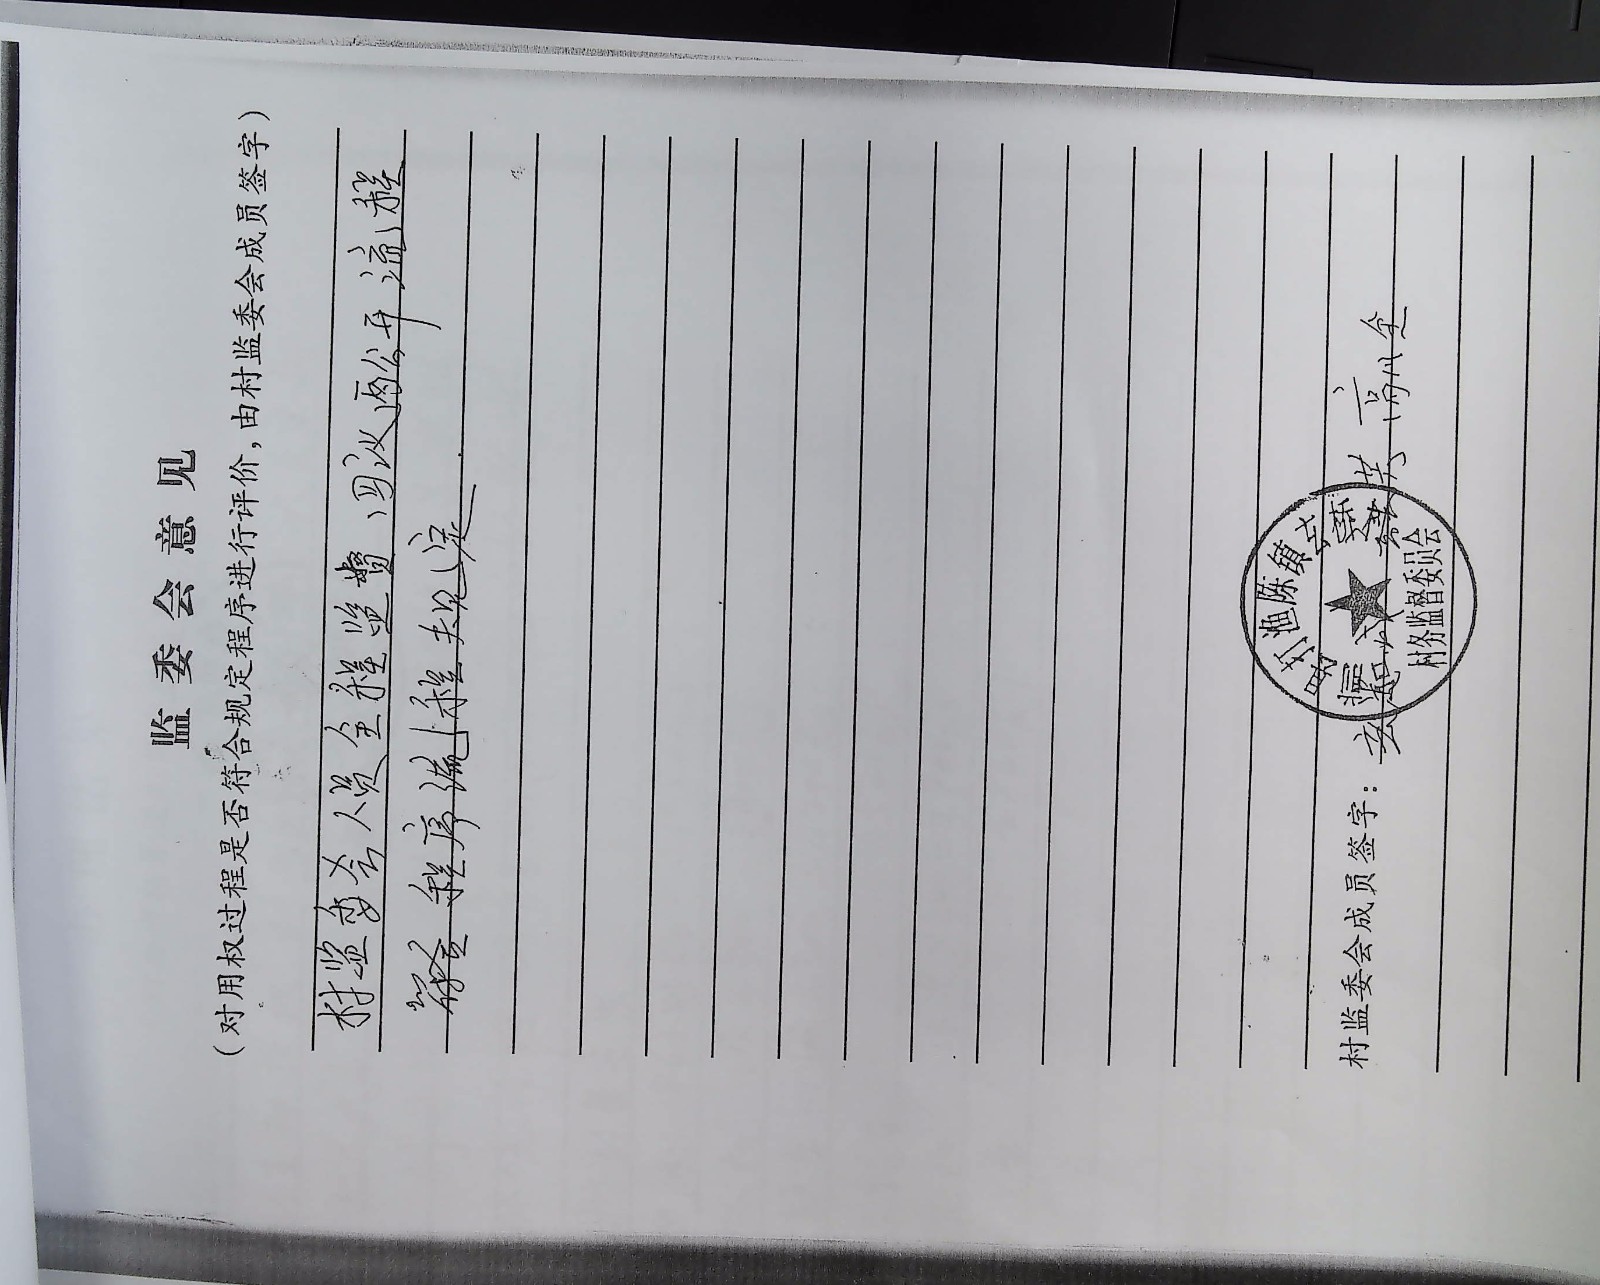 监委会意见
（对用权过程是否符合规定程序进行评价，由村监委会成员签字）
村监委会人员全程监督，四议两公开流程
程序流程规定
村监委会成员签字：
渔陈镇
村务监督委员会